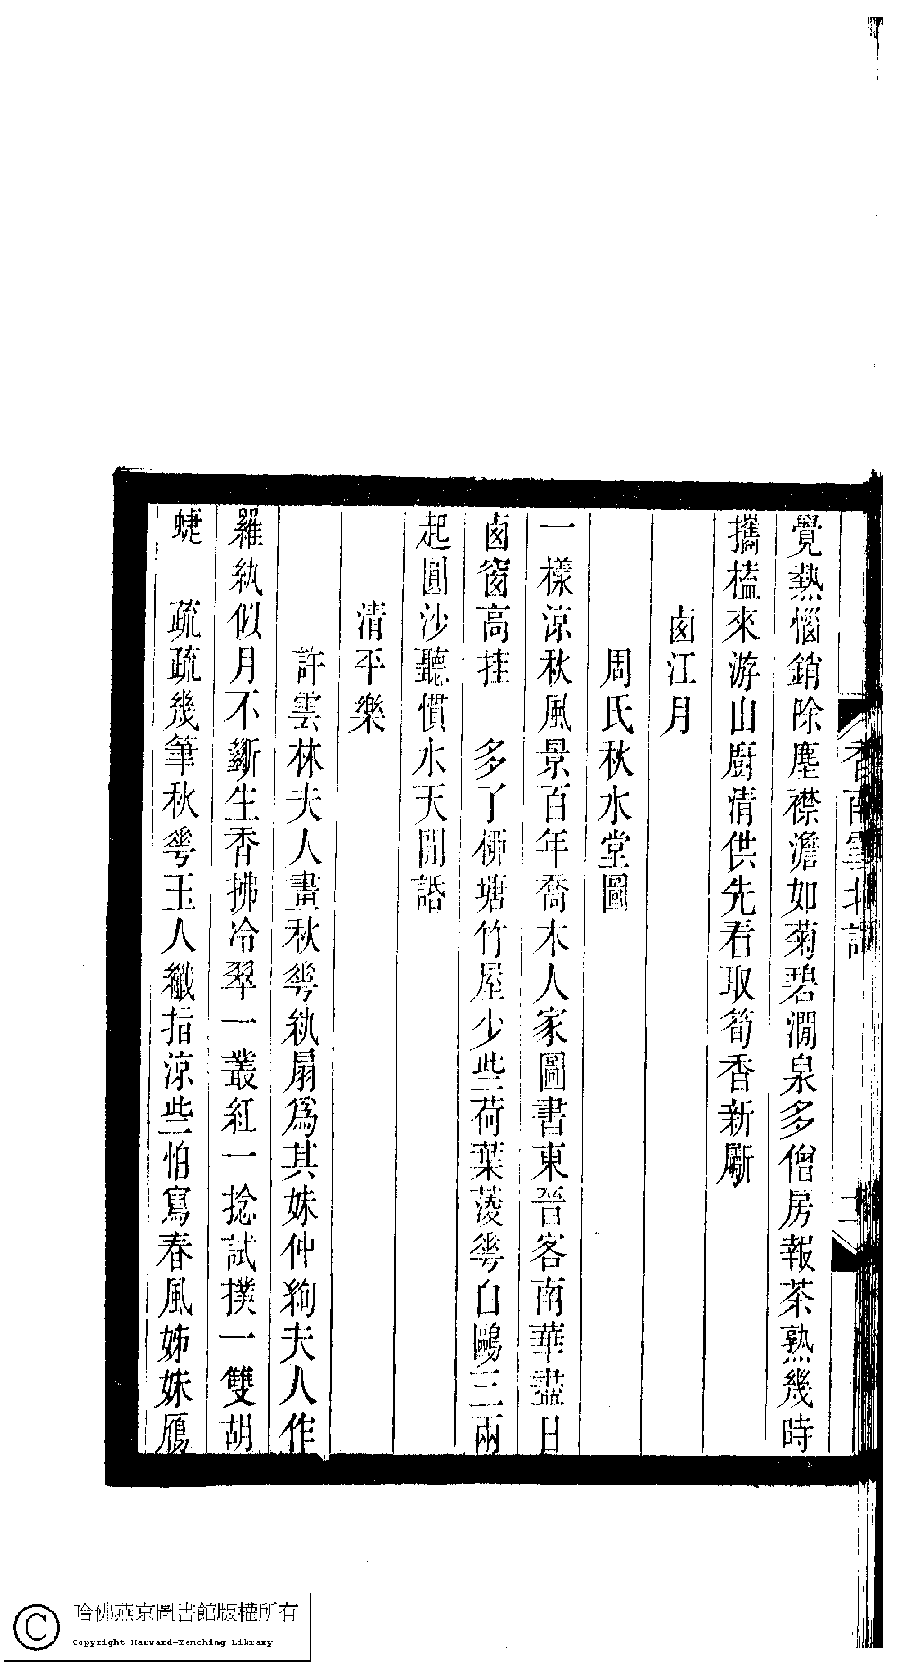 香南雪北詞
二
覺熱惱銷除塵襟澹如菊碧澗泉多僧房報茶熟幾時
攜榼來游山廚清供先看取筍香新斸
卤江月
周氏秋水堂圖
一樣涼秋風景百年喬木人家圖書東晉客南華盡日
卤窗高挂　多了桺塘竹屋少些荷葉蔆蕐白鷗三兩
起圓沙聽慣水天閒話
清平樂
許雲林夫人畫秋蕐紈扇爲其妹仲絢夫人作
羅紈似月不斷生香拂冷翠一叢紅一捻試撲一雙胡
蜨　疏疏幾筆秋蕐玉人纖指涼些怕寫春風姊妹鴈
哈佛燕京圖書館版權所有
Copyright Harvard-Yenching Library